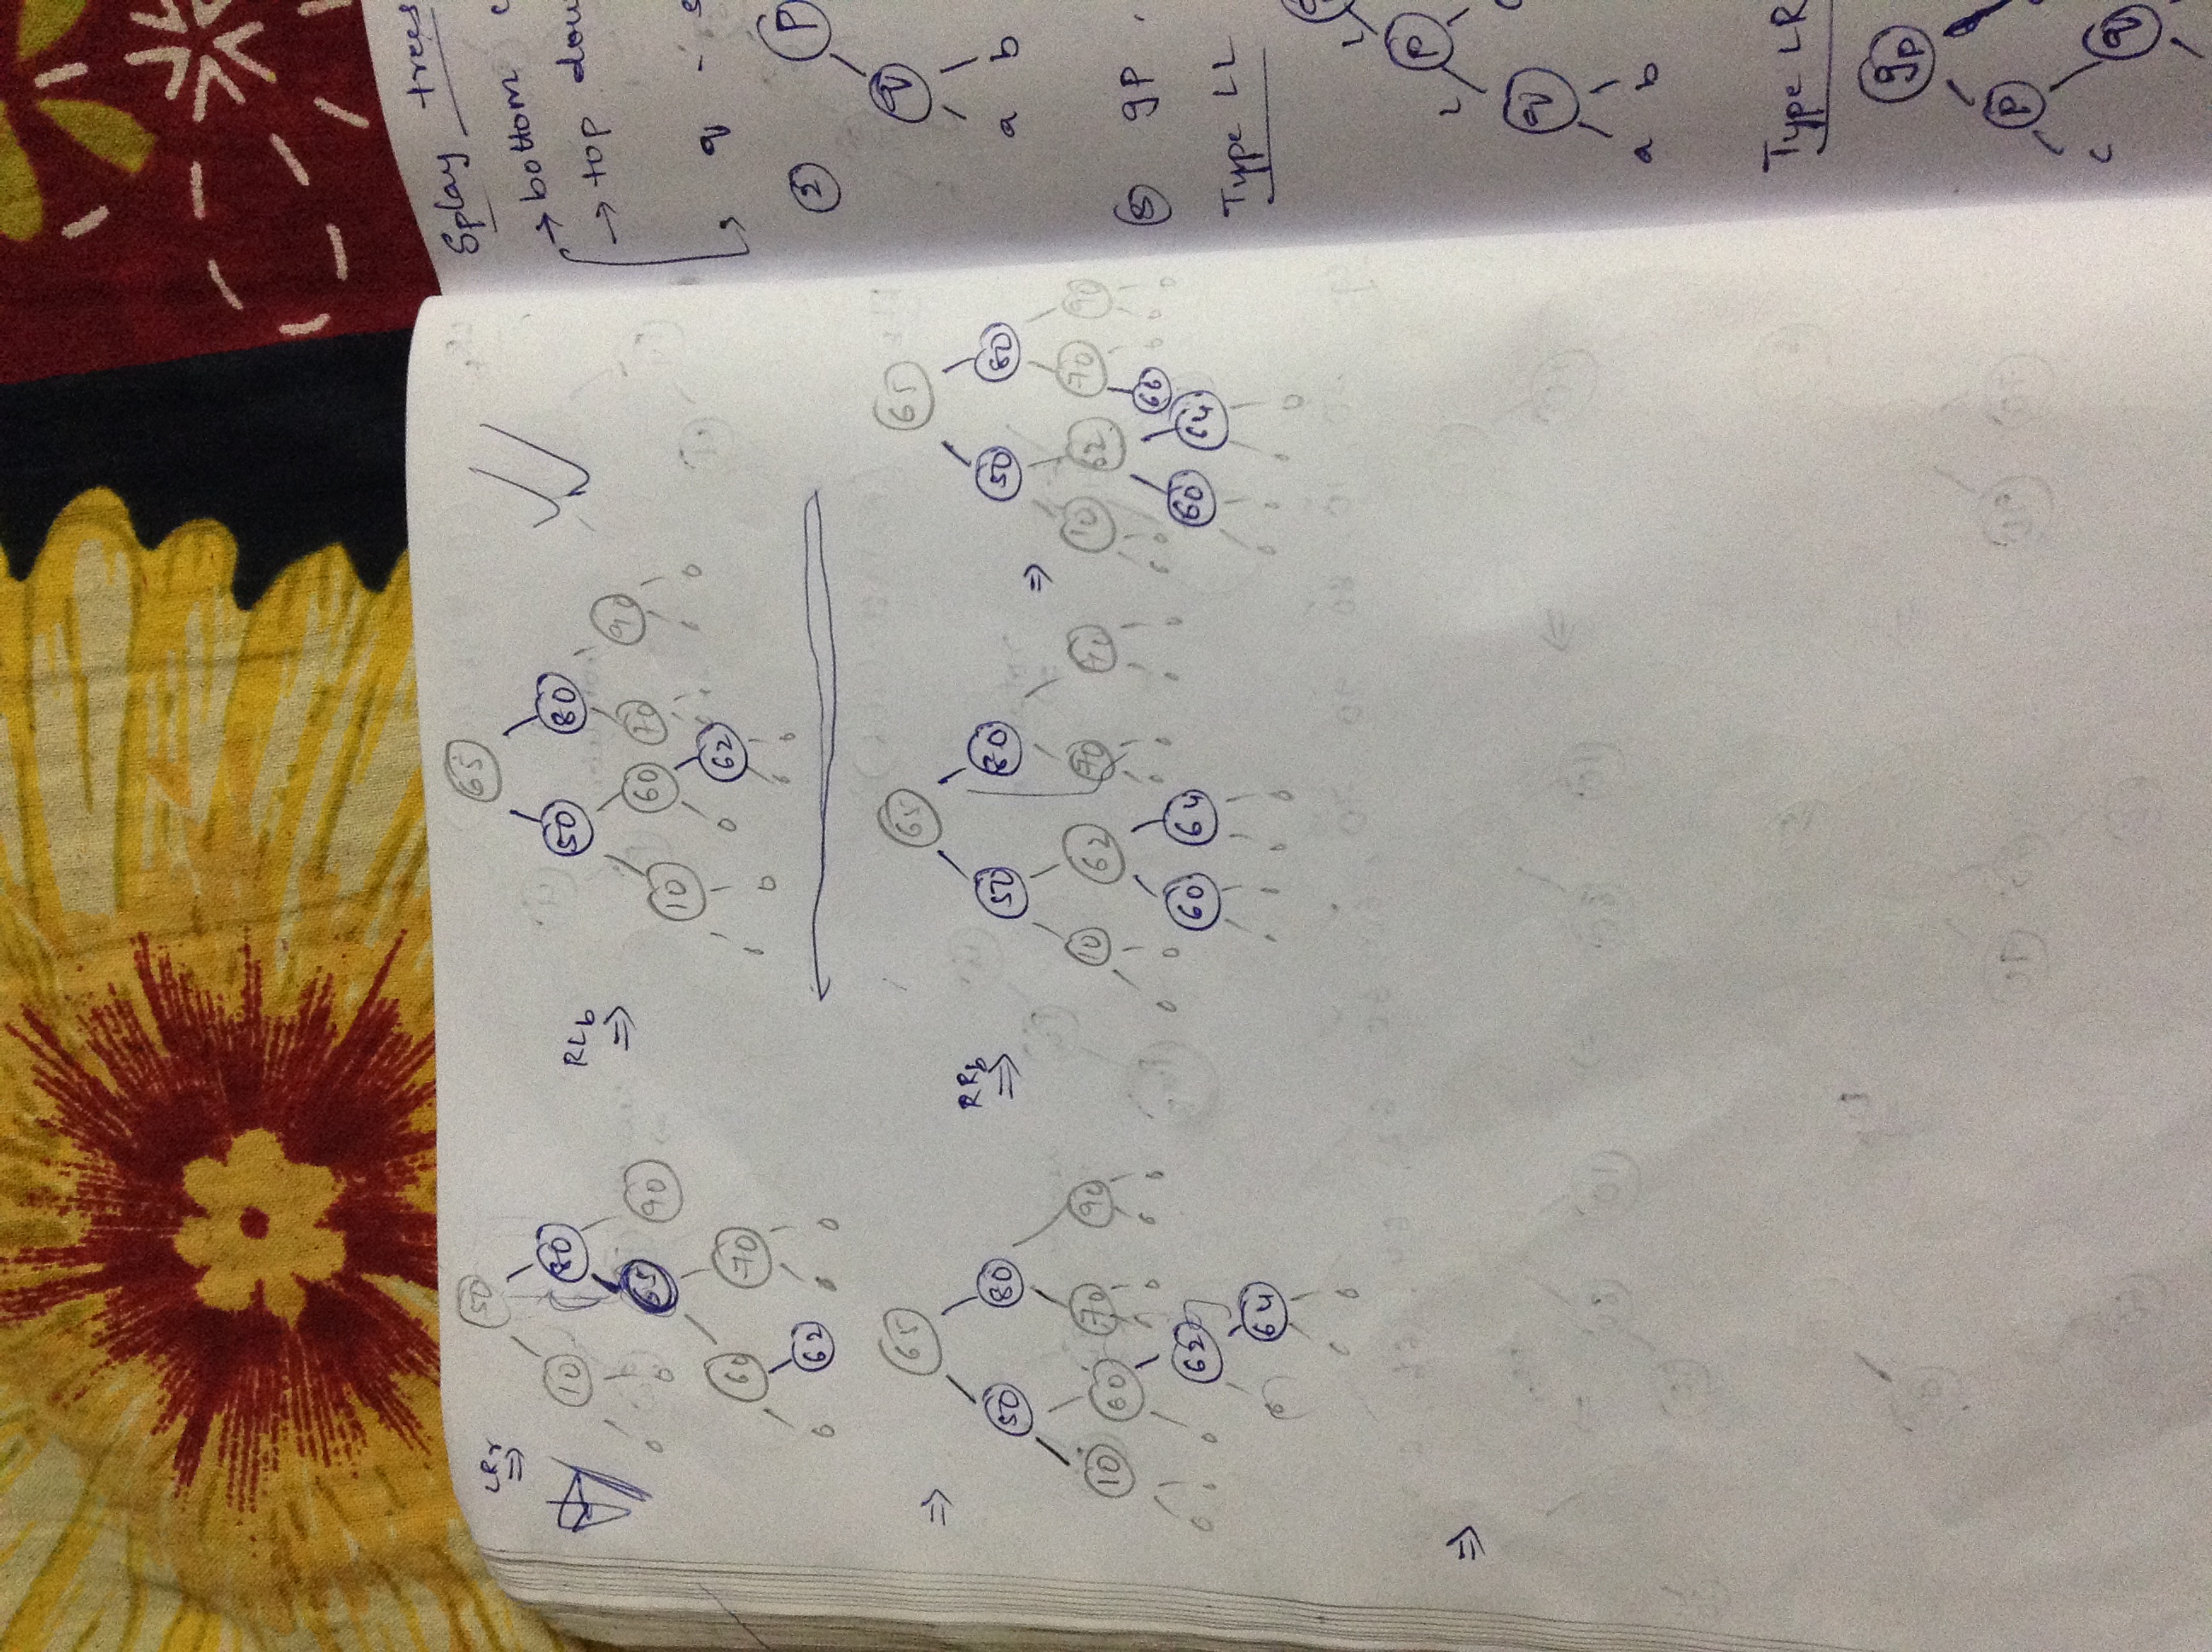 LRr
⇒
50
10 80
0 0 65 90
60 70
0 62 0 0
RLb
⇒
65
50 80
10 60 70 90
0 62 0 0
0 0 0 0
⇒
65
50 80
10 60 70 90
0 0 0 62 0 0 0
0 64
0 0
RRb
⇒
65
50 80
10 62 70 90
0 0 60 64 0 0 0 0
0 0 0 0
⇒
65
50 80
10 62 70 90
0 0 60 64 66 0 0 0
0 0 0 0
⇒
Splay trees
→ bottom
→ top
q -
2 p
q
a b
gp
Type LL
p
q
a b
Type LR
gp
p
c
q